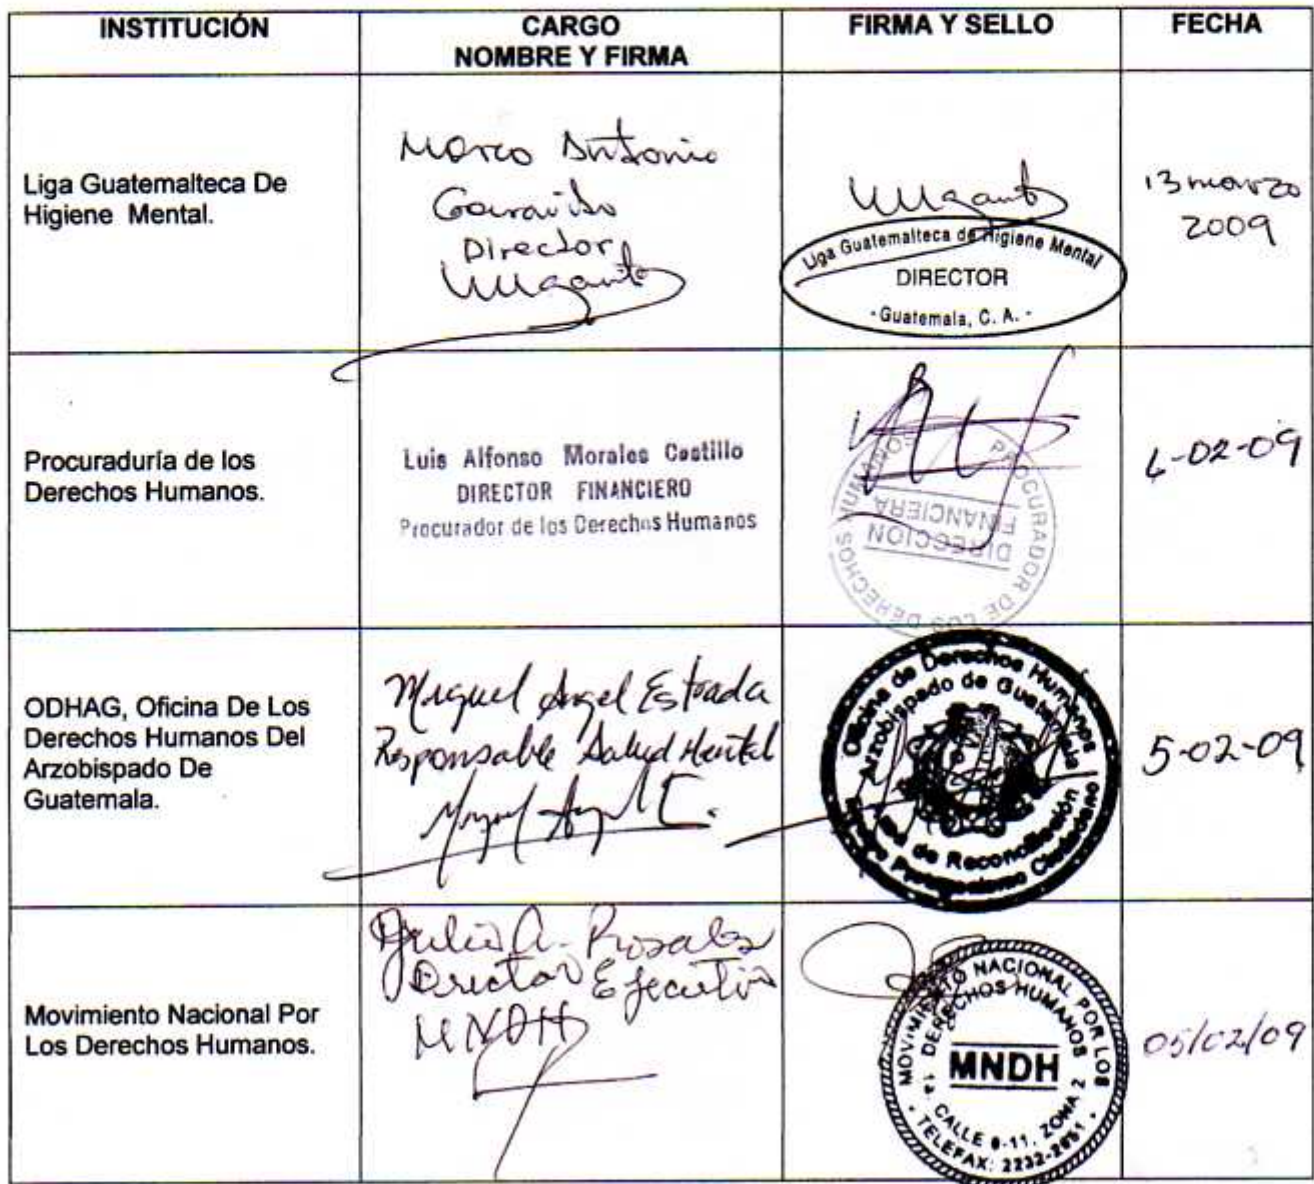 INSTITUCIÓN
CARGO
NOMBRE Y FIRMA
FIRMA Y SELLO
FECHA
Liga Guatemalteca De
Higiene Mental.
Marco Antonio
Garavito
Director
Liga Guatemalteca de Higiene Mental
DIRECTOR
- Guatemala, C. A. -
13 marzo
2009
Procuraduría de los
Derechos Humanos.
Luis Alfonso Morales Castillo
DIRECTOR FINANCIERO
Procurador de los Derechos Humanos
PROCURADOR DE LOS DERECHOS HUMANOS
DIRECCION
FINANCIERA
-02-09
ODHAG, Oficina De Los
Derechos Humanos Del
Arzobispado De
Guatemala.
Miguel Angel Estrada
Responsable Salud Mental
Oficina de Derechos Humanos
Arzobispado de Guatemala
de Reconciliación
Ciudadano
5-02-09
Movimiento Nacional Por
Los Derechos Humanos.
Julio A. Rosales
Director Ejecutivo
MNDH
MOVIMIENTO NACIONAL POR LOS
DERECHOS HUMANOS
MNDH
CALLE 8-11, ZONA 2
TELEFAX: 2232-2651
05/02/09